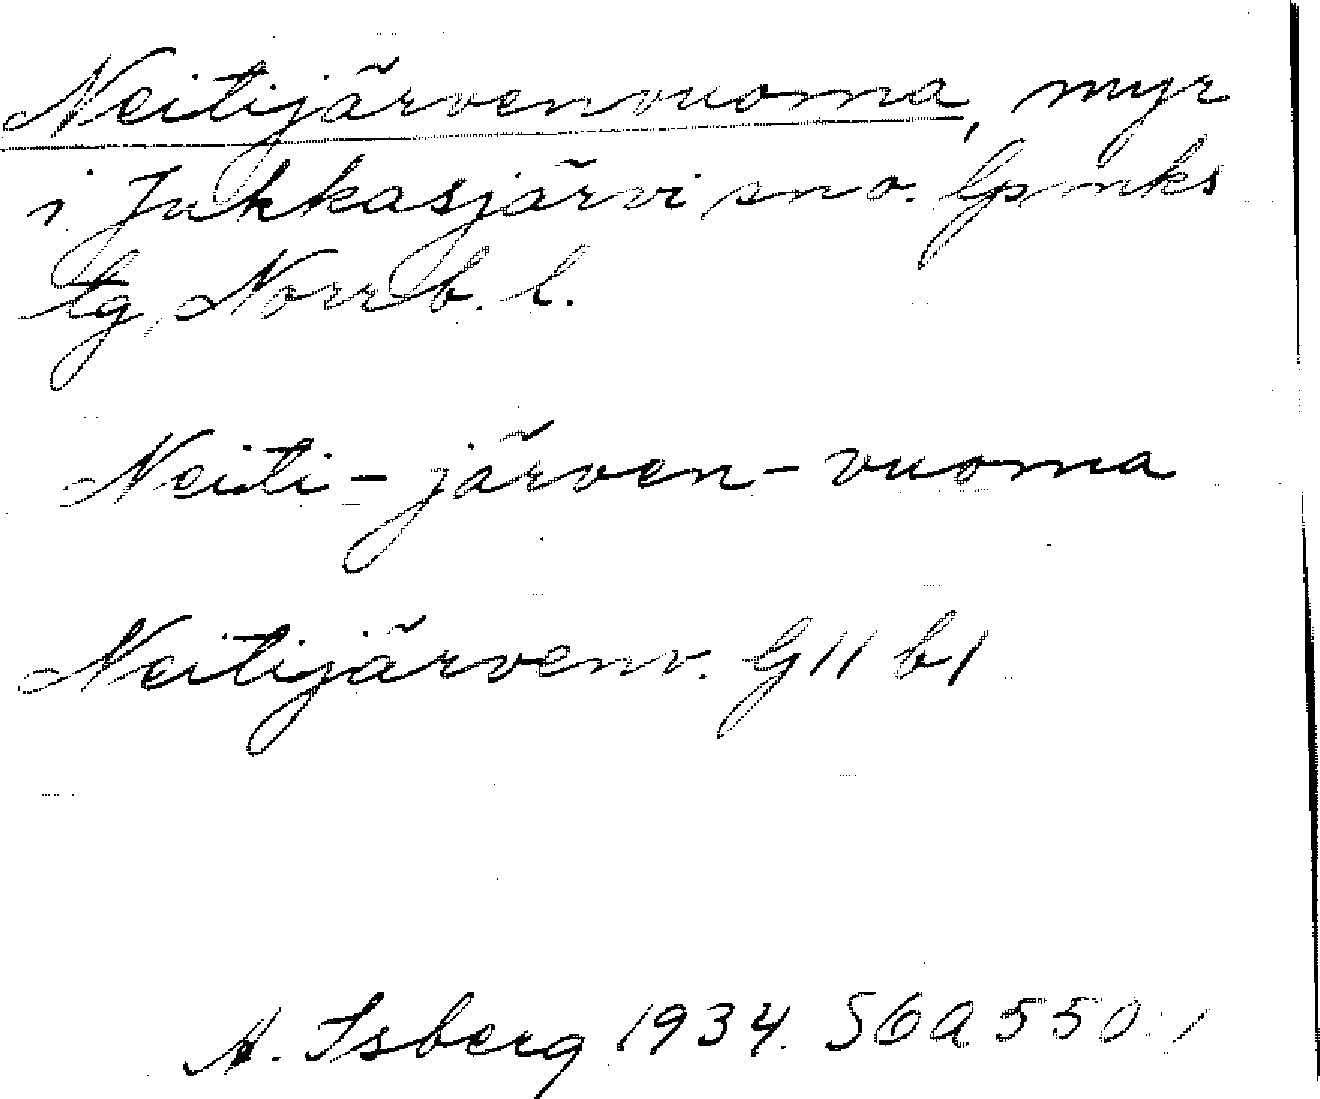 Neitijärvenvuoma, myr
i Jukkasjärvi sn o. lpmks
tg, Norrb. l.
Neiti-järven-vuoma
Neitijärvenv. GII b1
A. Isberg 1934. SOA 550:1